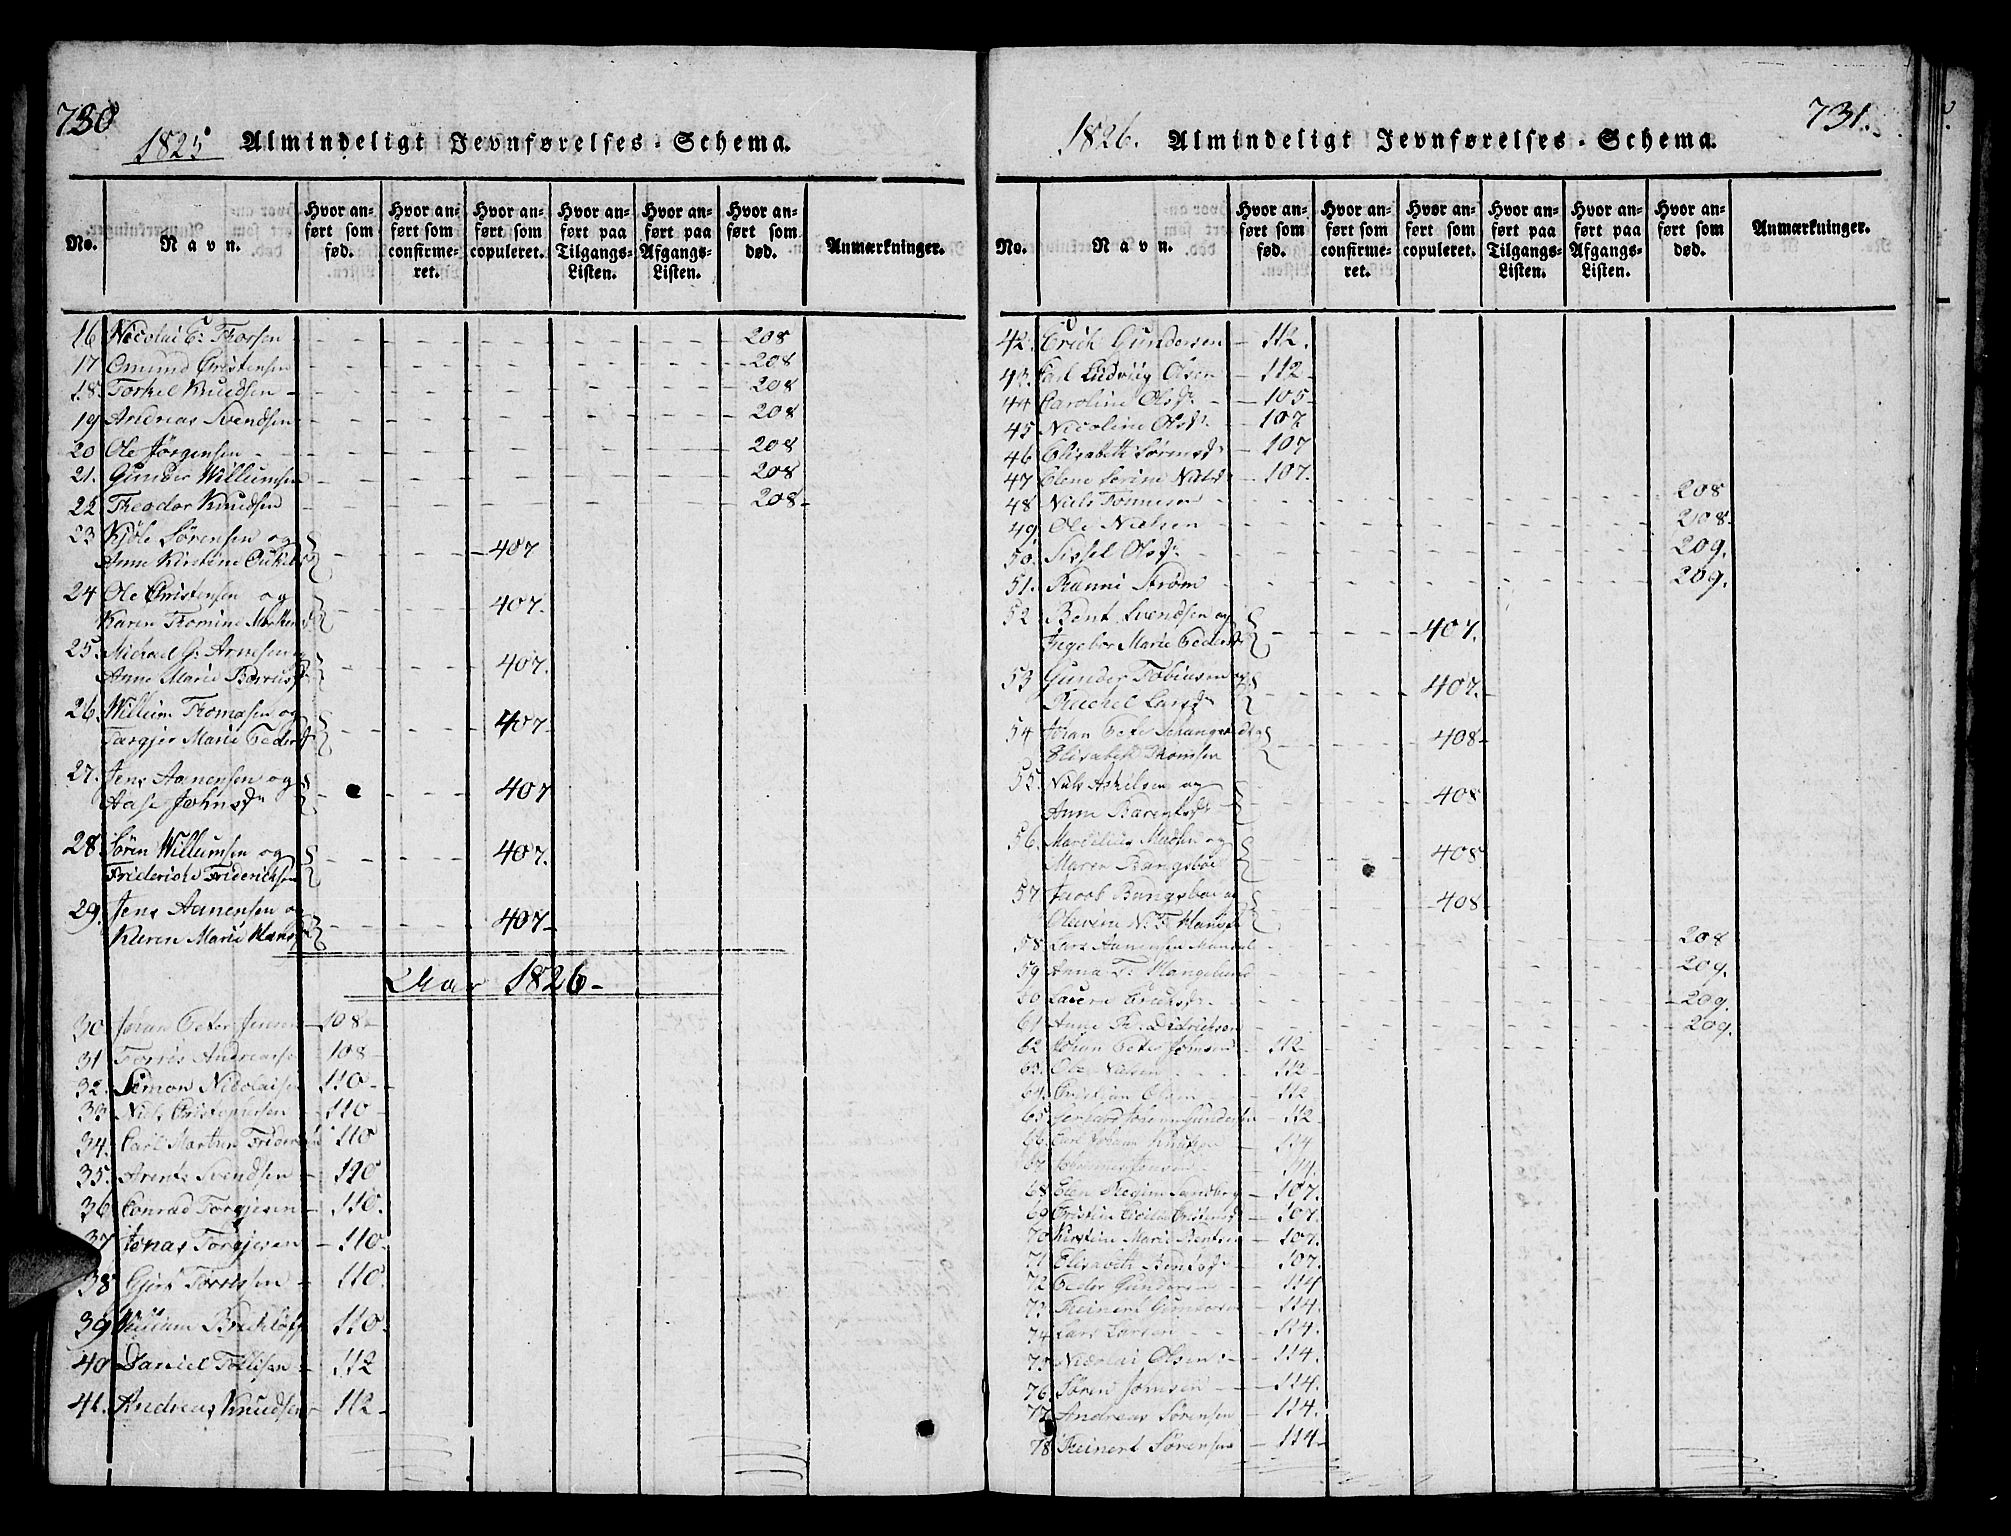 730
1825 Almindeligt Jevnførelses-Schema.
No. Navn. Hvor anført som fød. Hvor anført som confirmeret. Hvor anført som copuleret. Hvor anført paa Tilgangs-Listen. Hvor anført paa Afgangs-Listen. Hvor anført som død. Anmærkninger.
16 Nicolai C: Thorsen 208
17 Omund Cristensen 208
18. Torkel Knudsen 208
19 Andreas Svendsen 208
20 Ole Jörgensen 208
21. Gunder Willumsen 208
22 Theodor Knudsen 208
23 Kjöle Sørensen og
Anne Kirstine 407
24 Ole Christensen og
Karen Tomine 407.
25. Michael G: Arnesen og
Anne Marie 407.
26. Willum Thomasen og
Targjer Marie Peders 407
27. Jens Aanensen og
Aase Johnsdr 407
28. Sören Willumsen og
Friderich Fridericksen 407.
29. Jens Aanensen og
Karen Marie Hans 407
Aar 1826
30. Johan Peter Jensen 108
31 Torris Andreasen 108
32. Simon Nicolaisen 110
33. Niels Cristophersen 110
34. Carl Martin 110
35. Arent Svendsen 110
36. Conrad Torgjesen 110.
37 Jonas Torgjesen 110.
38 Torrissen 110.
39 Willum 110.
40 Daniel Tollisen 112
41. Andreas Knudsen 112
731.
1826. Almindeligt Jevnførelses-Schema.
No. Navn. Hvor anført som fød. Hvor anført som confirmeret. Hvor anført som copuleret. Hvor anført paa Tilgangs-Listen. Hvor anført paa Afgangs-Listen. Hvor anført som død. Anmærkninger.
42. Erich Gundersen 112.
43. Carl Ludvig Olsen 112
44 Caroline Olsdr 105
45 Nicoline Olsdr 107
46 Elisabeth Sørensdr 107
47 Elene Serine Nielsdr 107.
48 Niels Tønnesen 208
49. Ole Nielsen 208
50. Sissel Olsdr 209.
51. Ranni Strøm 209.
52 Bent Svendsen og
Ingebor Marie Peders 407.
53 Gunder Tobiasen og
Rachel Larsdr 407.
54 Johan Peter
Elisabeth Thomsen 408
55. Niels Askelsen og
Anne Barentsdr 408
56.
Maren Bangsböe 408
57 Jacob Bangsboe og
408
58 Lars Aanensen Mandal 208
59 Anna 209.
60 209.
61 Anne 209.
62 Johan Peter Johnsen 112
63. Ole Nielsen 112
64. Cristian Olsen 112
65 Gundersen 112
66 Carl Johan Knudsen 114
67 Johannes Jensen 114.
68 Elen Regine Sandberg 107.
69 107.
70 Kirstine Marie Bentsen 107.
71 Elisabeth 107.
72 Peder Gundersen 114
73 Reinert Gundersen 114.
74 Lars Larsen 114.
75 Nicolai Olsen 114.
76. Sören Johnsen 114.
77 Andreas Sörensen 114.
78 Reinert Sörensen 114